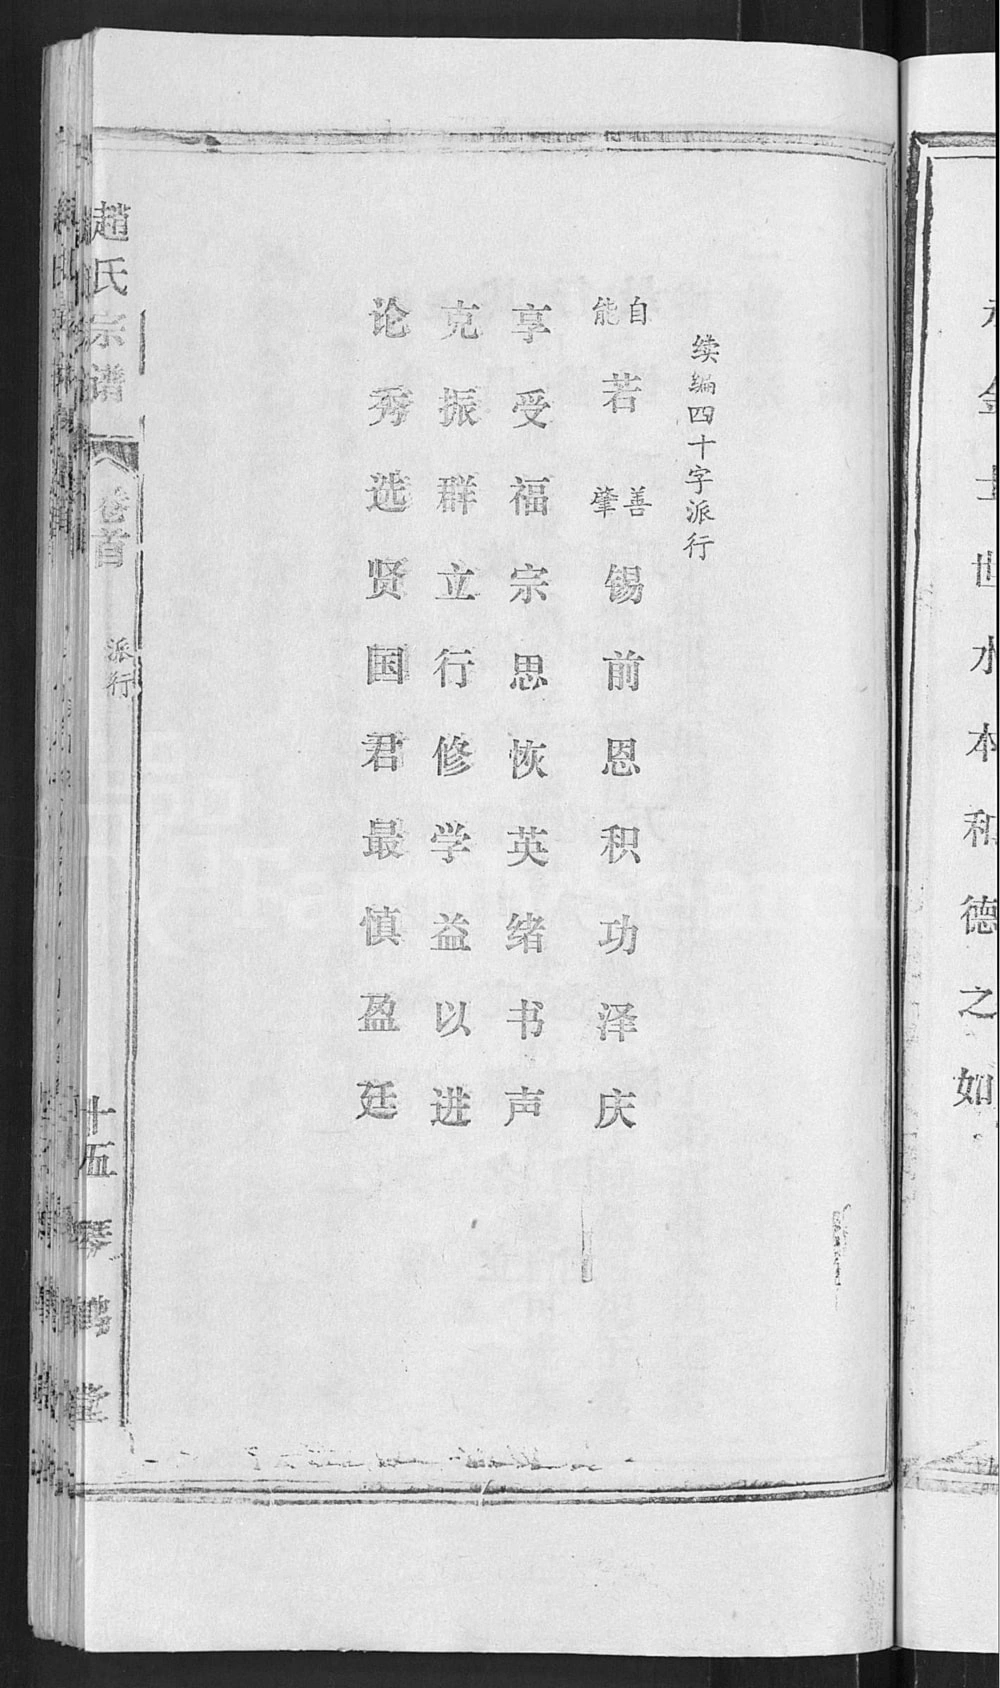 续编四十字派行
自能若善肇锡前恩积功泽庆
享受福宗思恢英绪书声
克振群立行修学益以进
论秀选贤国君最慎盈廷
趙氏宗谱
卷首
派行
十五
琴鹤堂
世水本和德之如